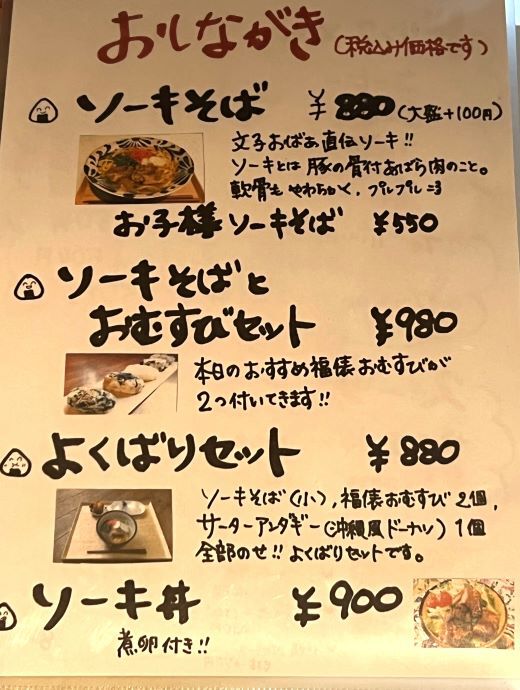 おしながき (税込み価格です)
ソーキそば ¥880 (大盛+100円)
文子おばあ直伝ソーキ!!
ソーキとは豚の骨付あばら肉のこと。
軟骨もやわらかく、プルプル
お子様ソーキそば ¥550
ソーキそばと
おむすびセット ¥980
本日のおすすめ福俵おむすびが
2つ付いてきます!!
よくばりセット ¥880
ソーキそば(小),福俵おむすび2個,
サーターアンダギー(沖縄風ドーナツ)1個
全部のせ!!よくばりセットです。
ソーキ丼 ¥900
煮卵付き!!